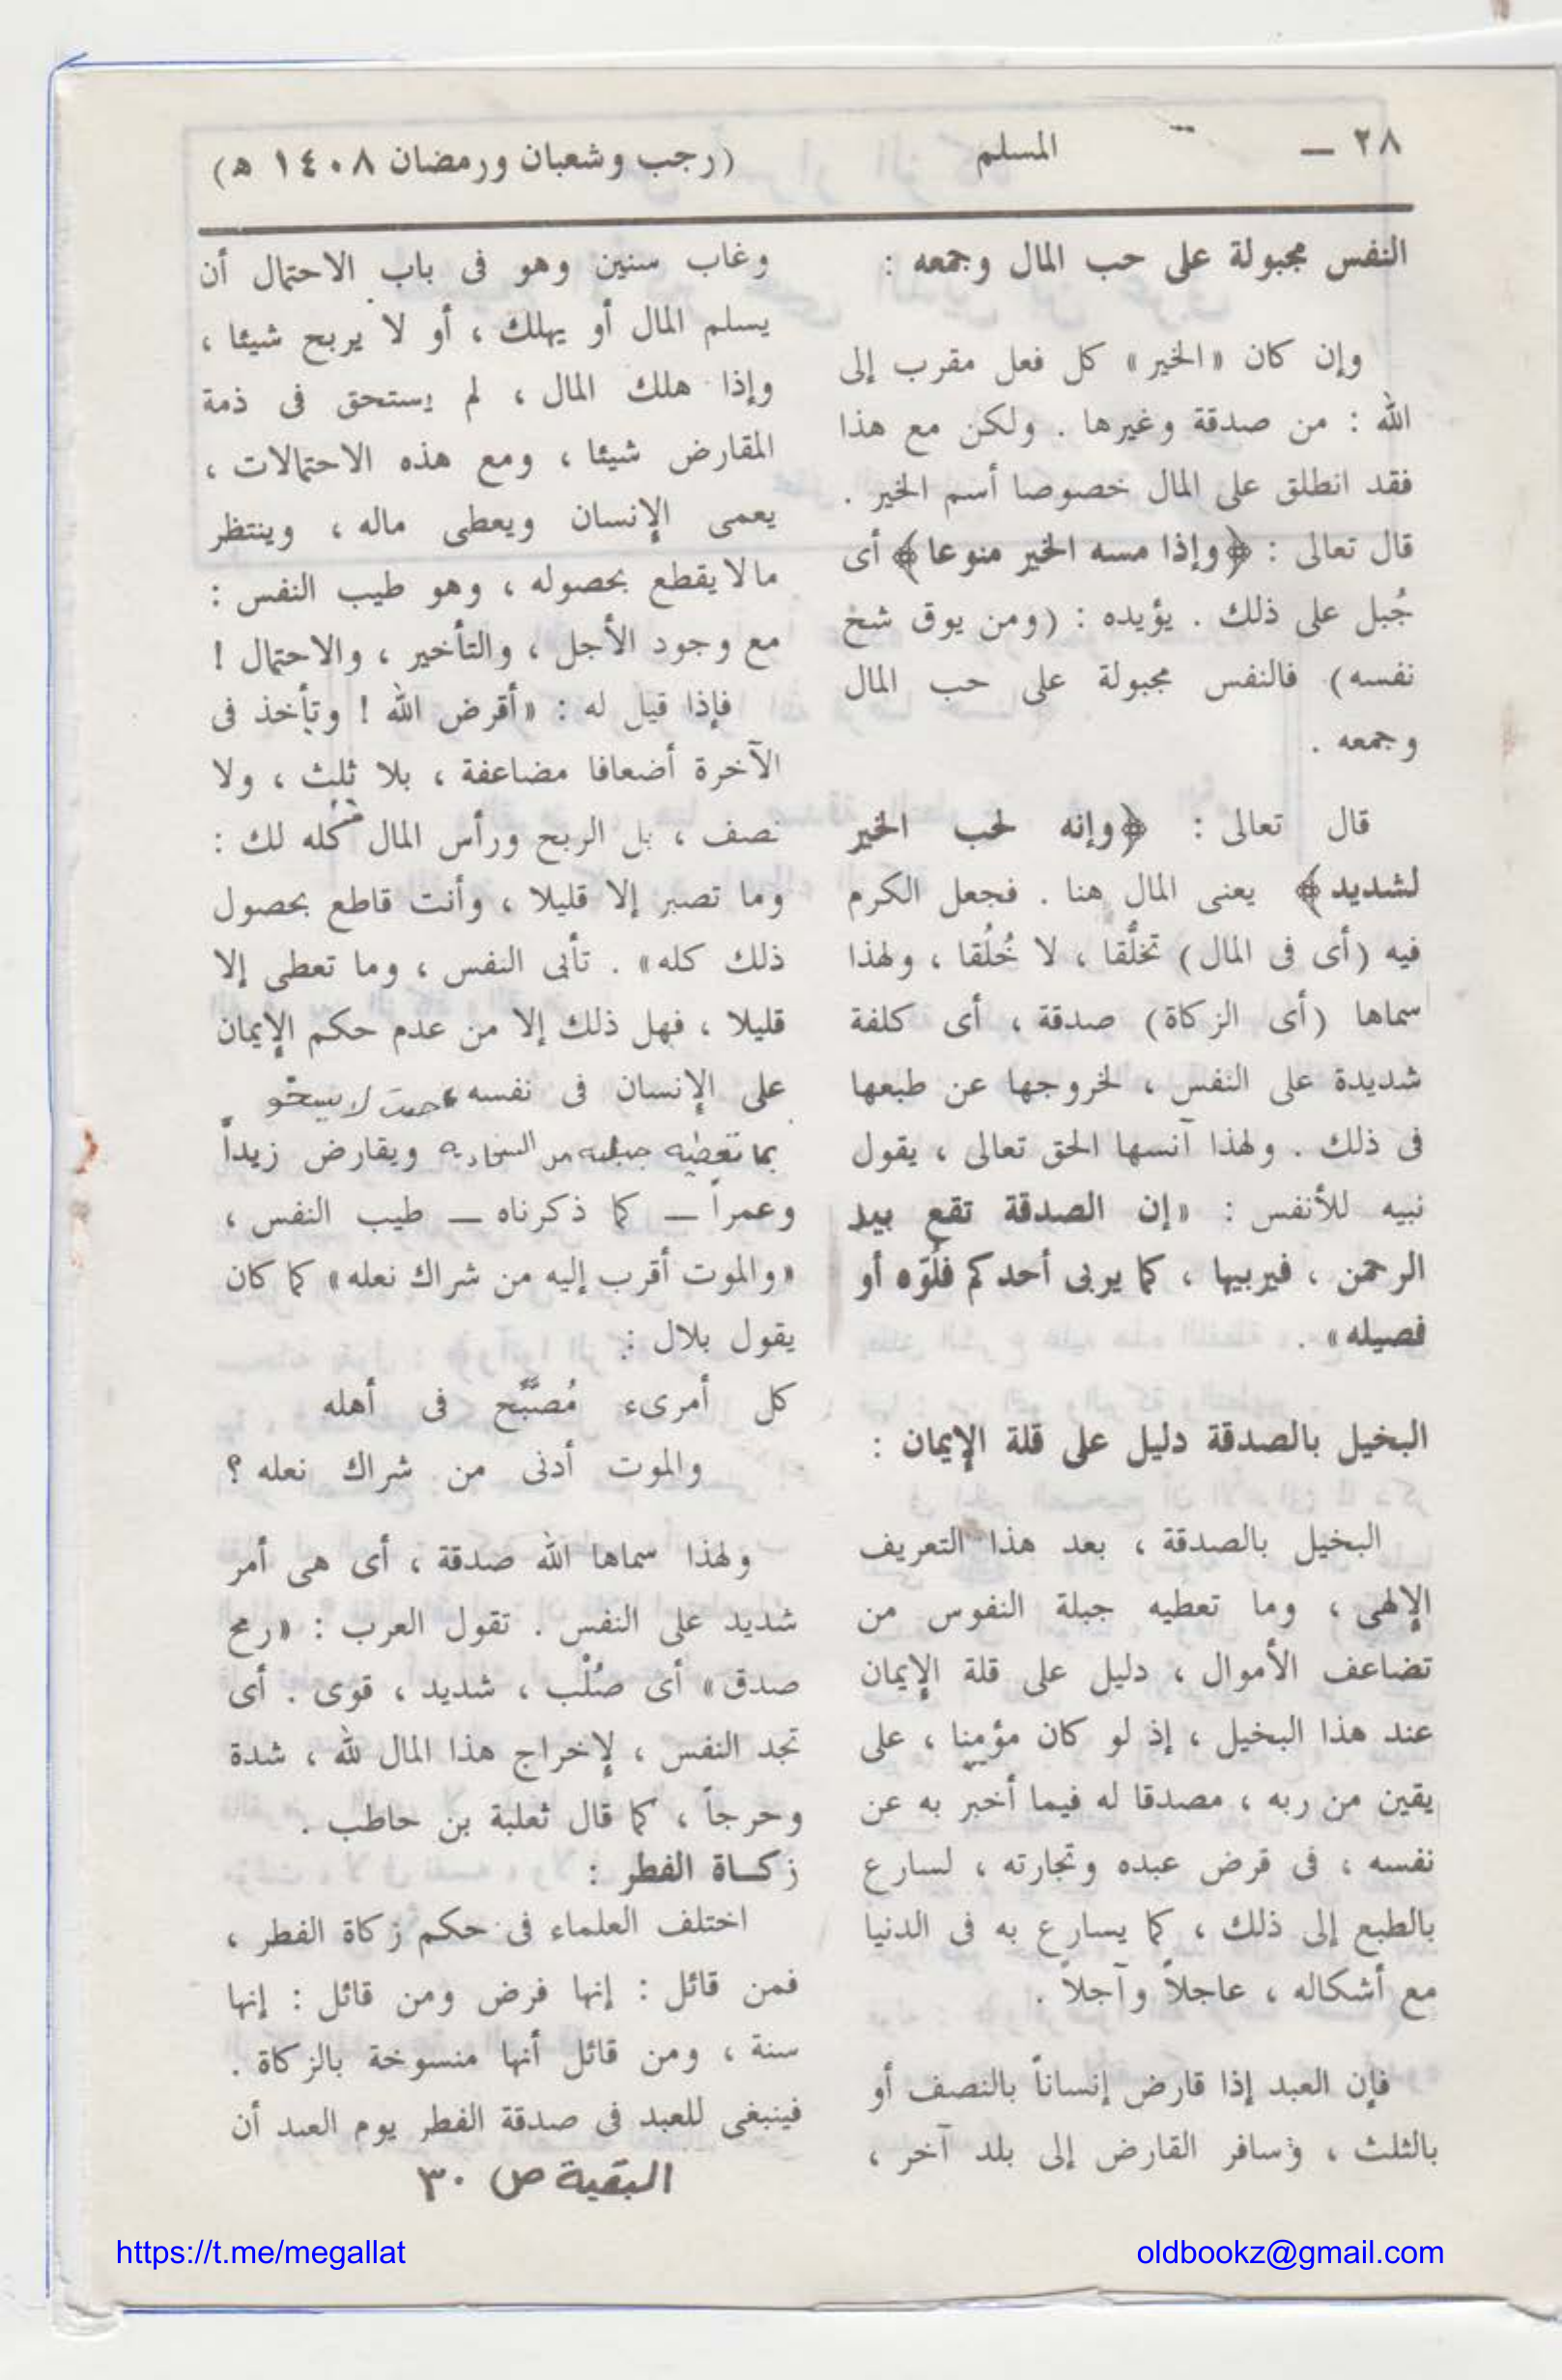 ٢٨ —
المسلم
(رجب وشعبان ورمضان ١٤٠٨ ه)
النفس مجبولة على حب المال وجمعه :
وإن كان «الخير» كل فعل مقرب إلى
الله : من صدقة وغيرها . ولكن مع هذا
فقد انطلق على المال خصوصا أسم الخير .
قال تعالى : ﴿وإذا مسه الخير منوعا﴾ أى
جُبل على ذلك . يؤيده : (ومن يوق شخ
نفسه) فالنفس مجبولة على حب المال
وجمعه .
قال تعالى : ﴿وإنه لحب الخير
لشديد﴾ يعنى المال هنا . فجعل الكرم
فيه (أى فى المال) تخلُّقا ، لا خُلُقا ، ولهذا
سماها (أى الزكاة) صدقة ، أى كلفة
شديدة على النفس ، لخروجها عن طبعها
فى ذلك . ولهذا آنسها الحق تعالى ، يقول
نبيه للأنفس : «إن الصدقة تقع بيد
الرحمن ، فيربيها ، كما يربى أحدكم فلُوّه أو
فصيله» .
البخيل بالصدقة دليل على قلة الإيمان :
البخيل بالصدقة ، بعد هذا التعريف
الإلهى ، وما تعطيه جبلة النفوس من
تضاعف الأموال ، دليل على قلة الإيمان
عند هذا البخيل ، إذ لو كان مؤمنا ، على
يقين من ربه ، مصدقا له فيما أخبر به عن
نفسه ، فى قرض عبده وتجارته ، لسارع
بالطبع إلى ذلك ، كما يسارع به فى الدنيا
مع أشكاله ، عاجلاً وآجلاً .
فإن العبد إذا قارض إنساناً بالنصف أو
بالثلث ، وسافر القارض إلى بلد آخر ،
وغاب سنين وهو فى باب الاحتمال أن
يسلم المال أو يهلك ، أو لا يربح شيئا ،
وإذا هلك المال ، لم يستحق فى ذمة
المقارض شيئا ، ومع هذه الاحتمالات ،
يعمى الإنسان ويعطى ماله ، وينتظر
مالا يقطع بحصوله ، وهو طيب النفس :
مع وجود الأجل ، والتأخير ، والاحتمال !
فإذا قيل له : «أقرض الله ! وتأخذ فى
الآخرة أضعافا مضاعفة ، بلا ثلث ، ولا
نصف ، بل الربح ورأس المال كله لك :
وما تصبر إلا قليلا ، وأنت قاطع بحصول
ذلك كله» . تأبى النفس ، وما تعطى إلا
قليلا ، فهل ذلك إلا من عدم حكم الإيمان
على الإنسان فى نفسه حيث لا يسخو
بما تعطيه جبلته من السخاء به ويقارض زيداً
وعمراً — كما ذكرناه — طيب النفس ،
«والموت أقرب إليه من شراك نعله» كما كان
يقول بلال :
كل أمرىء مُصَبَّح فى أهله
والموت أدنى من شراك نعله ؟
ولهذا سماها الله صدقة ، أى هى أمر
شديد على النفس . تقول العرب : «رمح
صدق» أى صُلْب ، شديد ، قوى . أى
تجد النفس ، لإخراج هذا المال لله ، شدة
وحرجاً ، كما قال ثعلبة بن حاطب .
زكـاة الفطر :
اختلف العلماء فى حكم زكاة الفطر ،
فمن قائل : إنها فرض ومن قائل : إنها
سنة ، ومن قائل أنها منسوخة بالزكاة .
فينبغى للعبد فى صدقة الفطر يوم العيد أن
البقية ص ٣٠
https://t.me/megallat
oldbookz@gmail.com